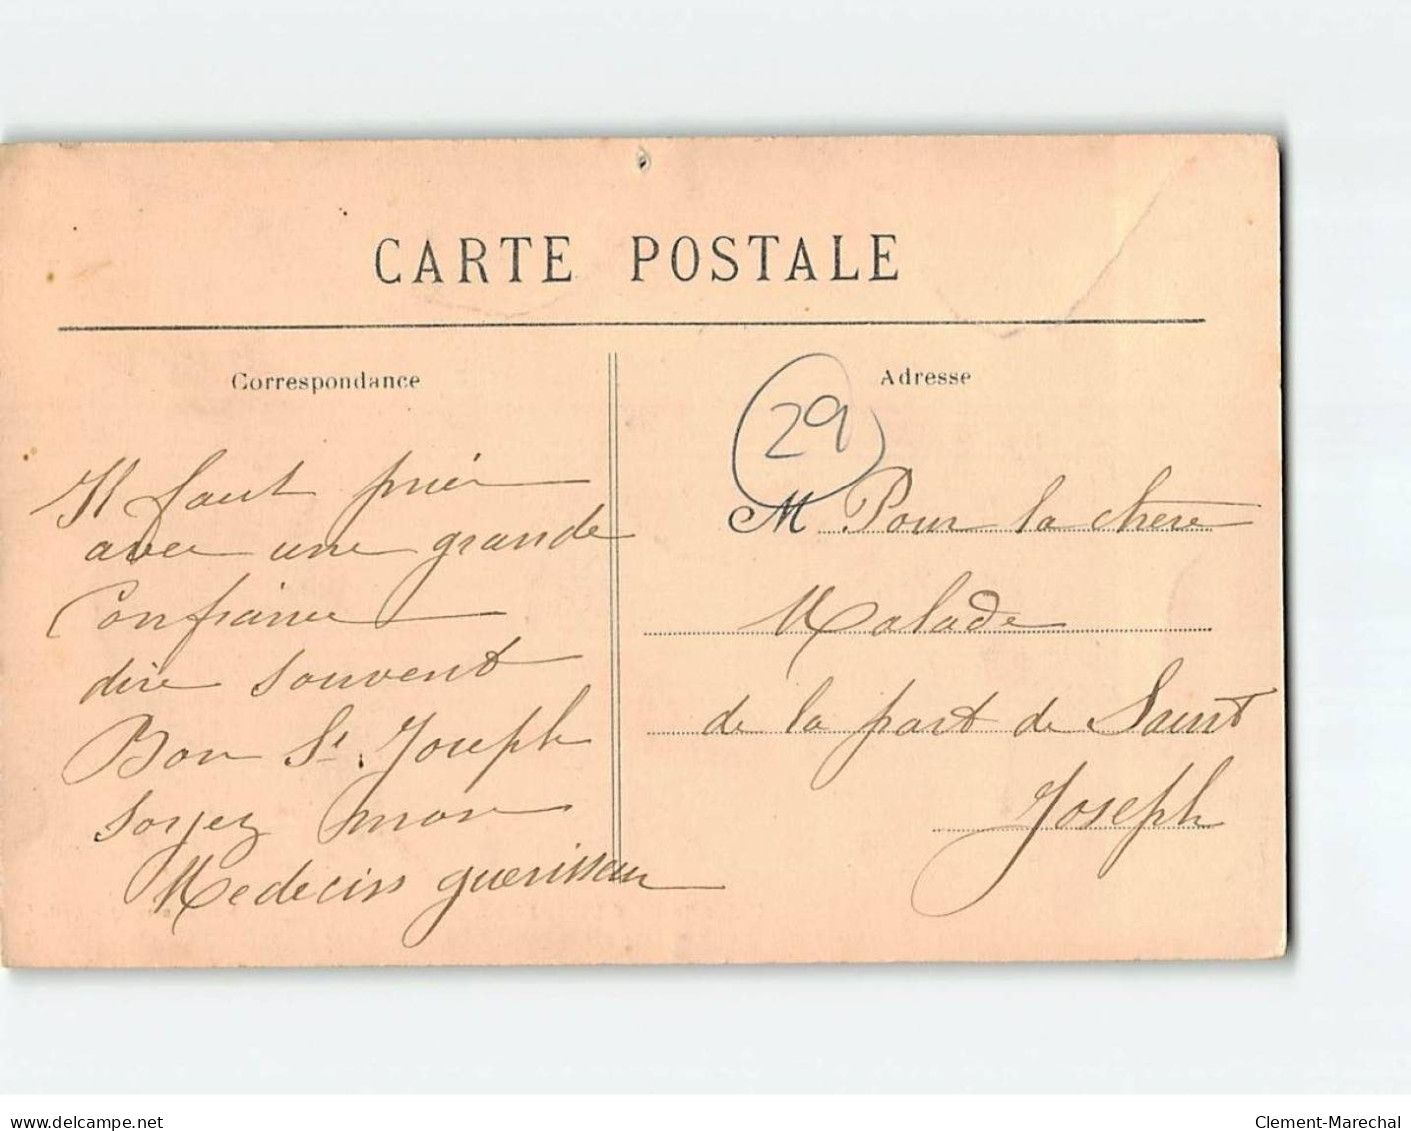 CARTE POSTALE
Correspondance
Il faut prier
avec une grande
Confiance
dire souvent
Bon St. Joseph
soyez mon
Medecin guerisseur
Adresse
29
M Pour la chere
Malade
de la part de Saint
Joseph
www.delcampe.net
Clement-Marechal